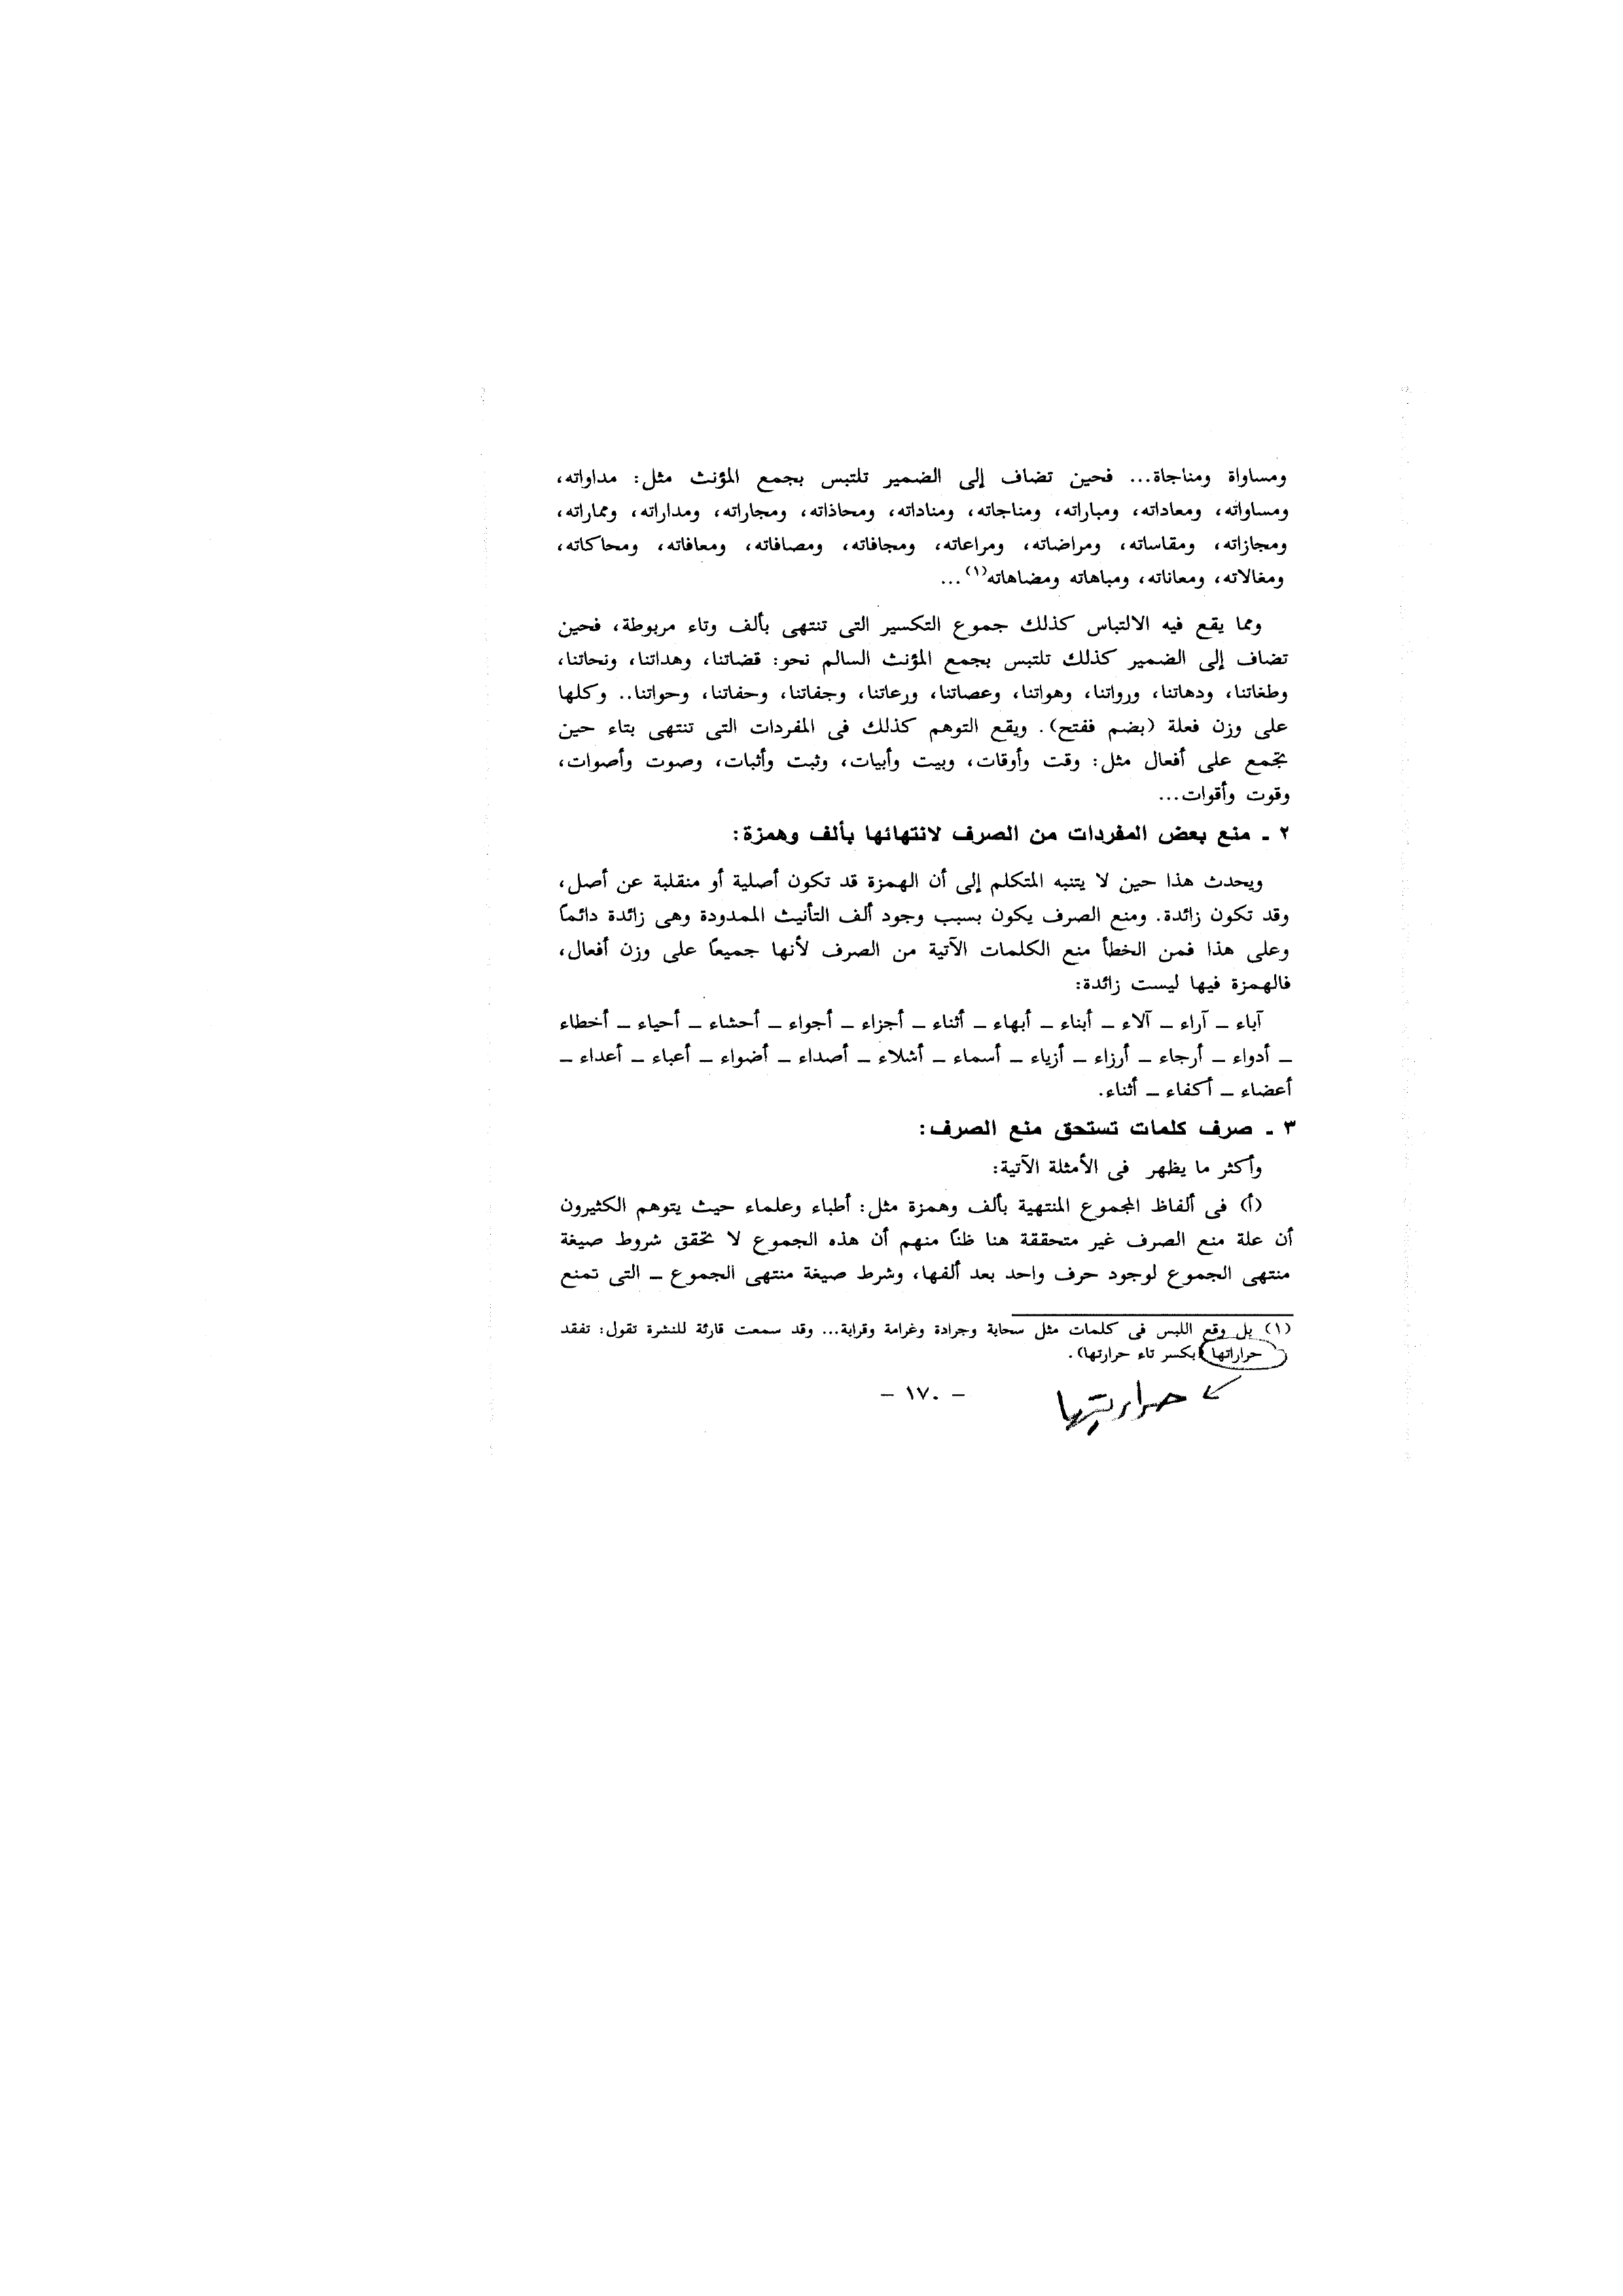 ومساواة ومناجاة... فحين تضاف إلى الضمير تلتبس بجمع المؤنث مثل: مداواته،
ومساواته، ومعاداته، ومباراته، ومناجاته، ومناداته، ومحاذاته، ومجاراته، ومداراته، ومماراته،
ومجازاته، ومقاساته، ومراضاته، ومراعاته، ومجافاته، ومصافاته، ومعافاته، ومحاكاته،
ومغالاته، ومعاناته، ومباهاته ومضاهاته(١)...
ومما يقع فيه الالتباس كذلك جموع التكسير التى تنتهى بألف وتاء مربوطة، فحين
تضاف إلى الضمير كذلك تلتبس بجمع المؤنث السالم نحو: قضاتنا، وهداتنا، ونحاتنا،
وطغاتنا، ودهاتنا، ورواتنا، وهواتنا، وعصاتنا، ورعاتنا، وجفاتنا، وحفاتنا، وحواتنا.. وكلها
على وزن فعلة (بضم ففتح). ويقع التوهم كذلك فى المفردات التى تنتهى بتاء حين
تجمع على أفعال مثل: وقت وأوقات، وبيت وأبيات، وثبت وأثبات، وصوت وأصوات،
وقوت وأقوات...
٢ ـ منع بعض المفردات من الصرف لانتهائها بألف وهمزة:
ويحدث هذا حين لا يتنبه المتكلم إلى أن الهمزة قد تكون أصلية أو منقلبة عن أصل،
وقد تكون زائدة. ومنع الصرف يكون بسبب وجود ألف التأنيث الممدودة وهى زائدة دائماً
وعلى هذا فمن الخطأ منع الكلمات الآتية من الصرف لأنها جميعاً على وزن أفعال،
فالهمزة فيها ليست زائدة:
آباء ــ آراء ــ آلاء ــ أبناء ــ أبهاء ــ أثناء ــ أجزاء ــ أجواء ــ أحشاء ــ أحياء ــ أخطاء
ــ أدواء ــ أرجاء ــ أرزاء ــ أزياء ــ أسماء ــ أشلاء ــ أصداء ــ أضواء ــ أعباء ــ أعداء ــ
أعضاء ــ أكفاء ــ أثناء.
٣ ـ صرف كلمات تستحق منع الصرف:
وأكثر ما يظهر فى الأمثلة الآتية:
(أ) فى ألفاظ المجموع المنتهية بألف وهمزة مثل: أطباء وعلماء حيث يتوهم الكثيرون
أن علة منع الصرف غير متحققة هنا ظناً منهم أن هذه الجموع لا تحقق شروط صيغة
منتهى الجموع لوجود حرف واحد بعد ألفها، وشرط صيغة منتهى الجموع ــ التى تمنع
(١) بل وقع اللبس فى كلمات مثل سحابة وجرادة وغرامة وقرابة... وقد سمعت قارئة للنشرة تقول: تفقد
حراراتها (بكسر تاء حرارتها).
حرارتِها
– ١٧٠ –